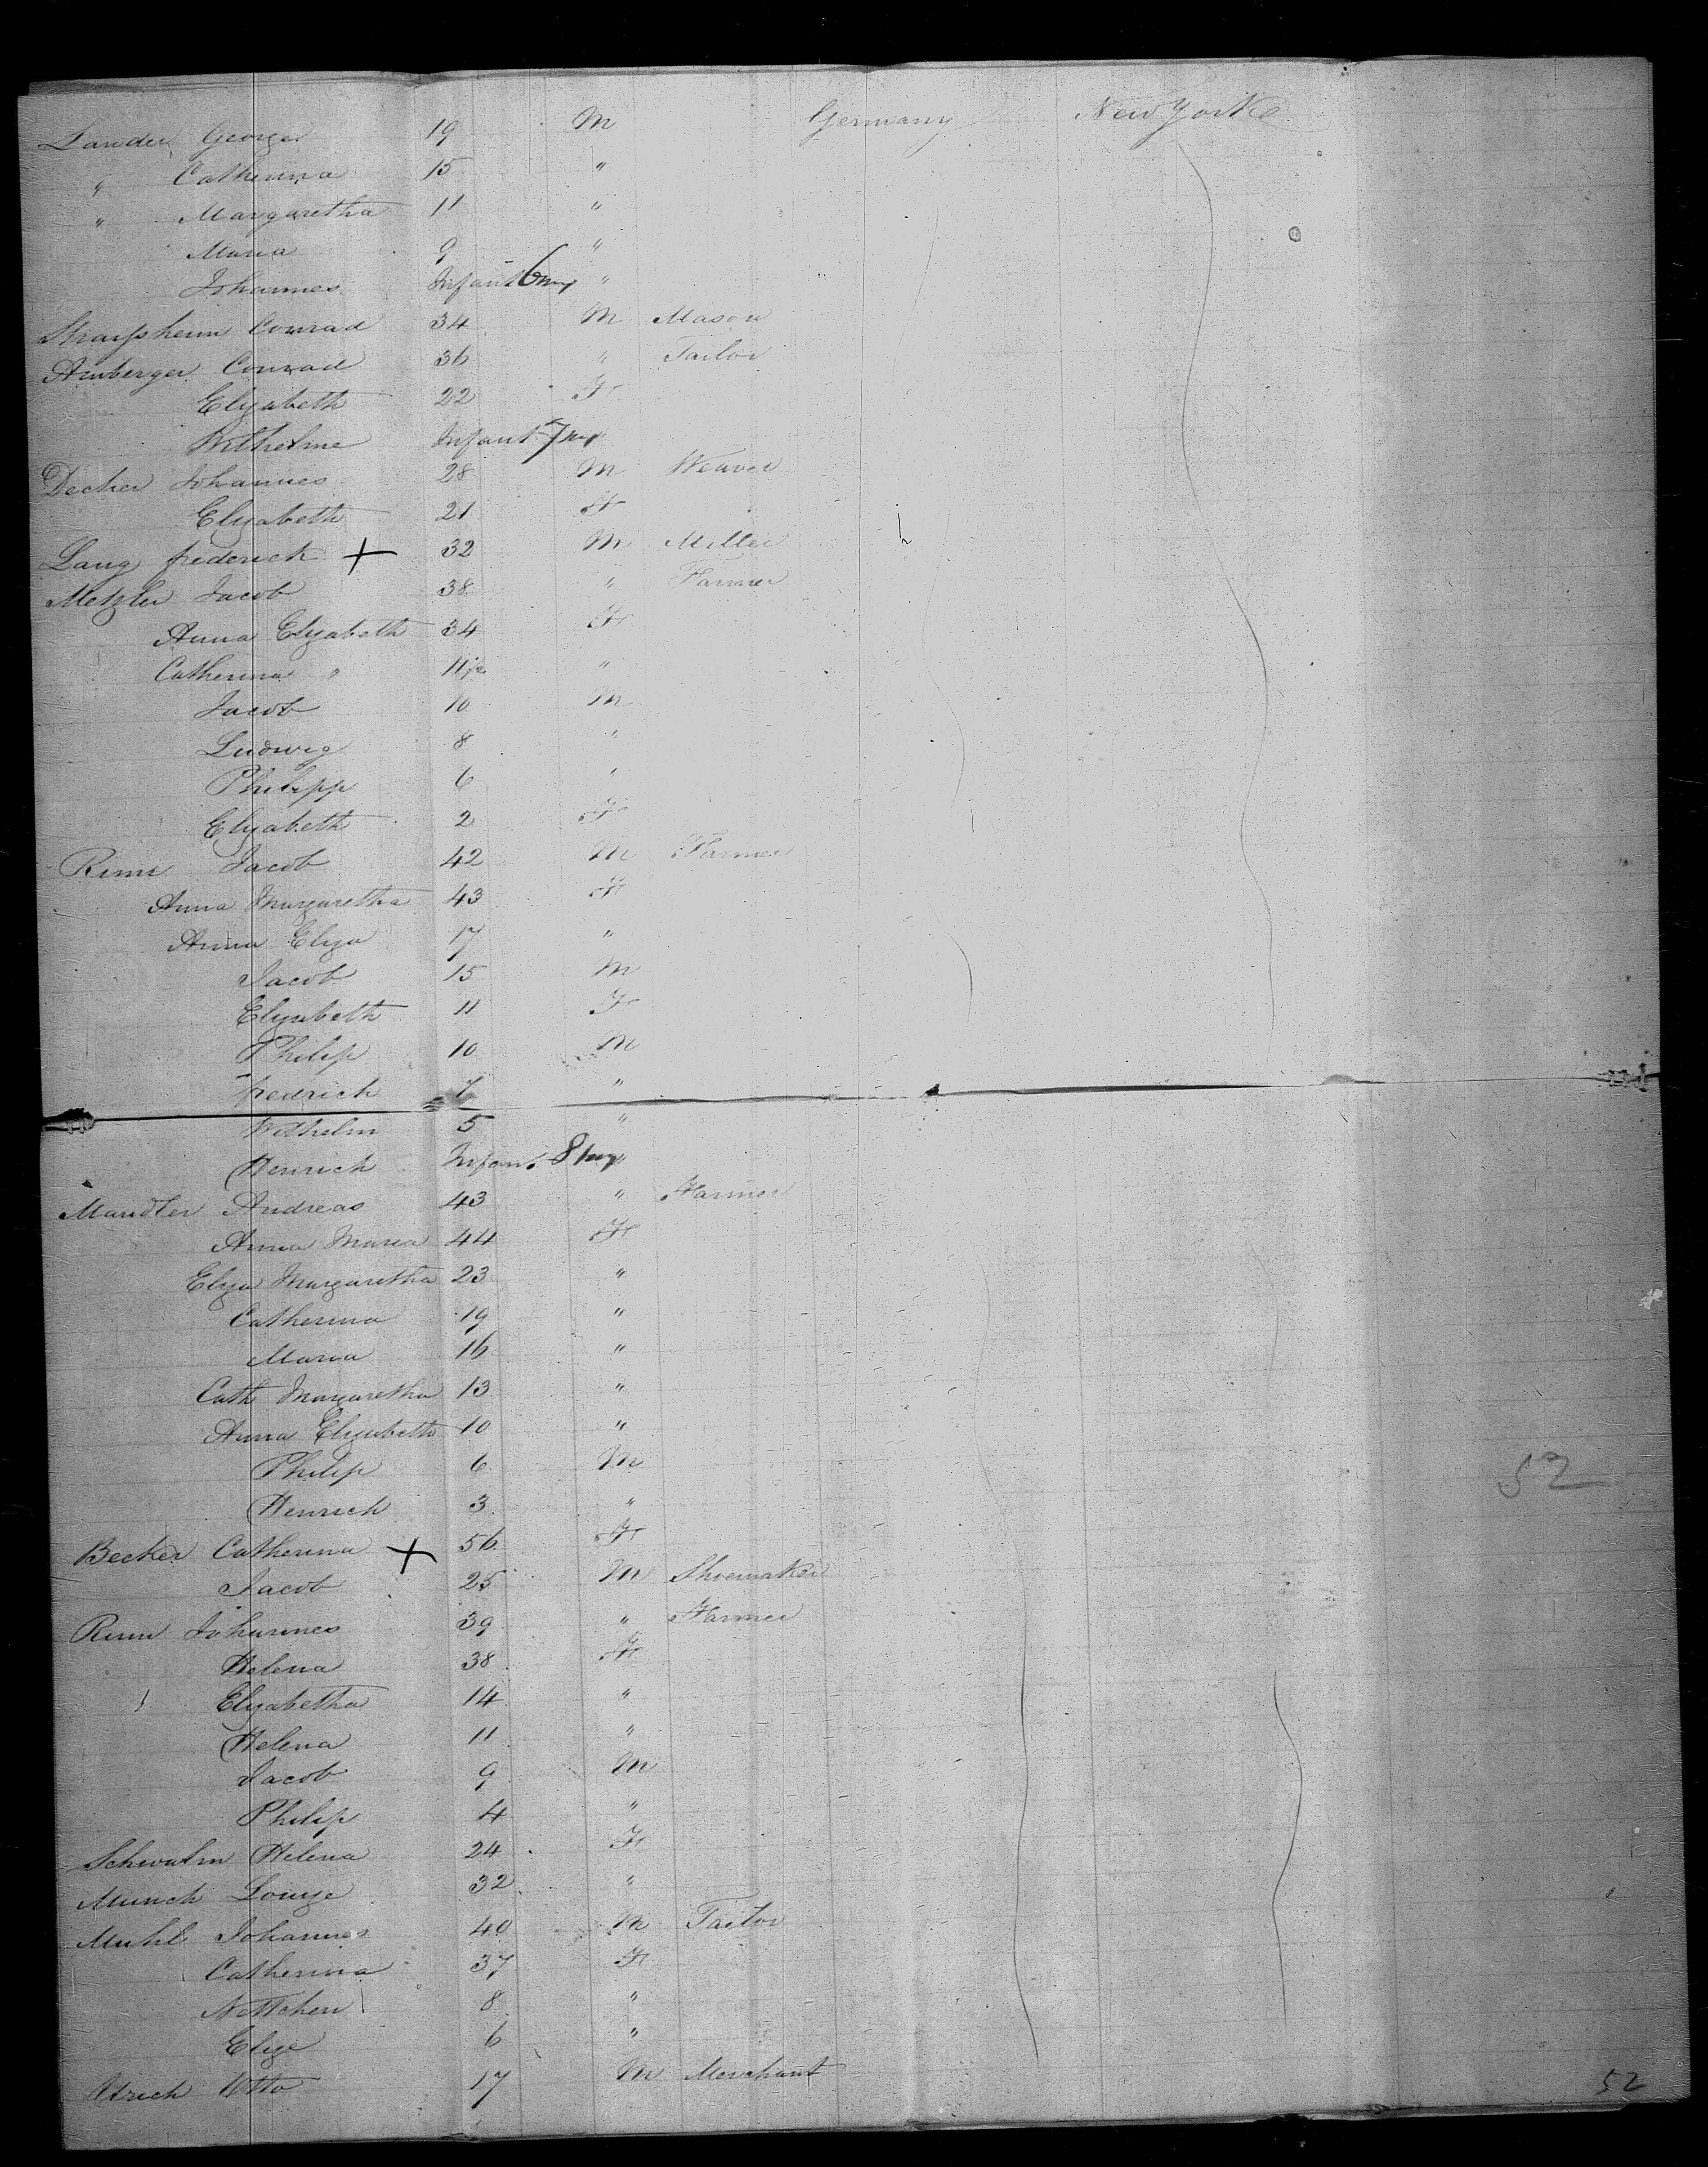 Lander George 19 M Germany New Yorke
" Catherina 15 "
" Margaretha 11 "
Maria 9 "
Johannes Infant 6 my "
Conrad 34 M Mason
Amberger Conrad 36 " Tailor
Elyabeth 22 F
Wilhelme Infant 7 my "
Decker Johannes 28 M Weaver
Elyabeth 21 F
Lang frederick + 32 M Miller
Metzler Jacob 38 " Farmer
Anna Elyabeth 34 F
Catherina " 11 "
Jacob 10 M
Ludwig 8 "
Philipp 6 "
Elyabeth 2 F
Rimn Jacob 42 M Farmer
Anna Margaretha 43 F
Anna Elya 17 "
Jacob 15 M
Elyabeth 11 F
Philip 10 M
fredrich 7 "
Wilhelm 5 "
Henrich Infant 8 my "
Mandler Andreas 43 " Farmer
Anna Maria 44 F
Elya Margaretha 23 "
Catherina 19 "
Maria 16 "
Cath Margaretha 13 "
Anna Elyabeth 10 "
Philip 6 M
Henrich 3 "
52
Becker Catherina + 56 F
Jacob 25 M Shoemaker
Rimn Johannes 39 " Farmer
Helena 38 F
Elyabetha 14 "
Helena 11 "
Jacob 9 M
Philip 4 "
Schwalm Helena 24 F
Munch Louise 32 "
Muhl Johannes 40 M Tailor
Catherina 37 F
Nettchen 8 "
Elise 6 "
Otto 17 M Merchant
52